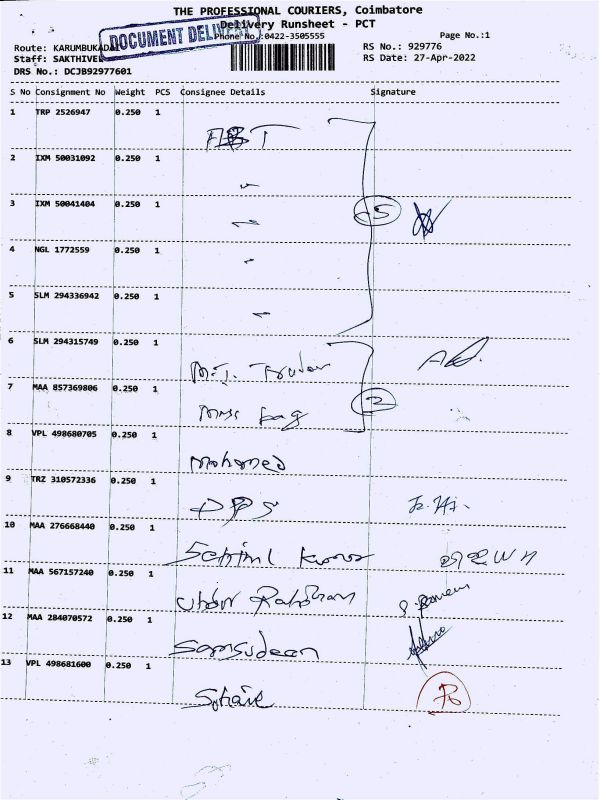 THE PROFESSIONAL COURIERS, Coimbatore
Delivery Runsheet - PCT
DOCUMENT
Phone No.:0422-3505555
Page No.:1
Route: KARUMBUKADAI
RS No.: 929776
Staff: SAKTHIVEL
RS Date: 27-Apr-2022
DRS No.: DCJB92977601
S No Consignment No Weight PCS Consignee Details Signature
1 TRP 2526947 0.250 1
2 IXM 50031092 0.250 1
3 IXM 50041404 0.250 1
5
4 NGL 1772559 0.250 1
5 SLM 294336942 0.250 1
6 SLM 294315749 0.250 1 M.J.
7 MAA 857369806 0.250 1 bag
2
8 VPL 498680705 0.250 1 Mohamed
9 TRZ 310572336 0.250 1 DPS
10 MAA 276668440 0.250 1
11 MAA 567157240 0.250 1
12 MAA 284070572 0.250 1 Samsudeen
13 VPL 498681600 0.250 1